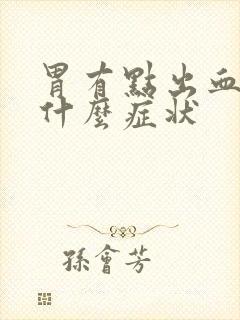 胃有點出血
什麼症狀
孫會芳